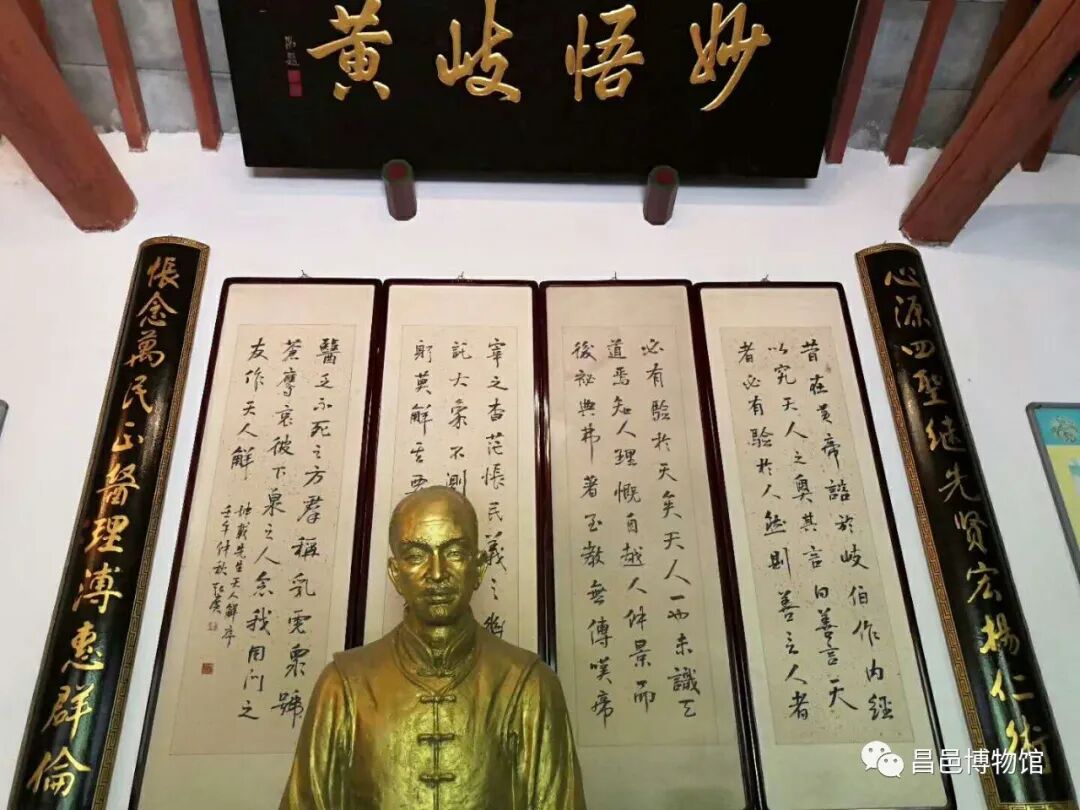 妙悟岐黄
心源四聖继先贤宏揚仁术
昔在黄帝諮於岐伯作内经
以究天人之奥其言曰善言天
者必有驗於人然則善言人者
必有驗於天矣天人一也未識天
道焉知人理慨自越人仲景而
後祕典弗著至教無傳嘆帝
宰之杳茫悵民義之幽
託大象不測
躬莫解
醫乏不死之方羣稱乳虎票號
蒼鷹哀彼下泉之人念我同门之
友作天人解
坤載先生天人解序
壬午仲秋
悵念萬民正醫理溥惠群倫
昌邑博物馆